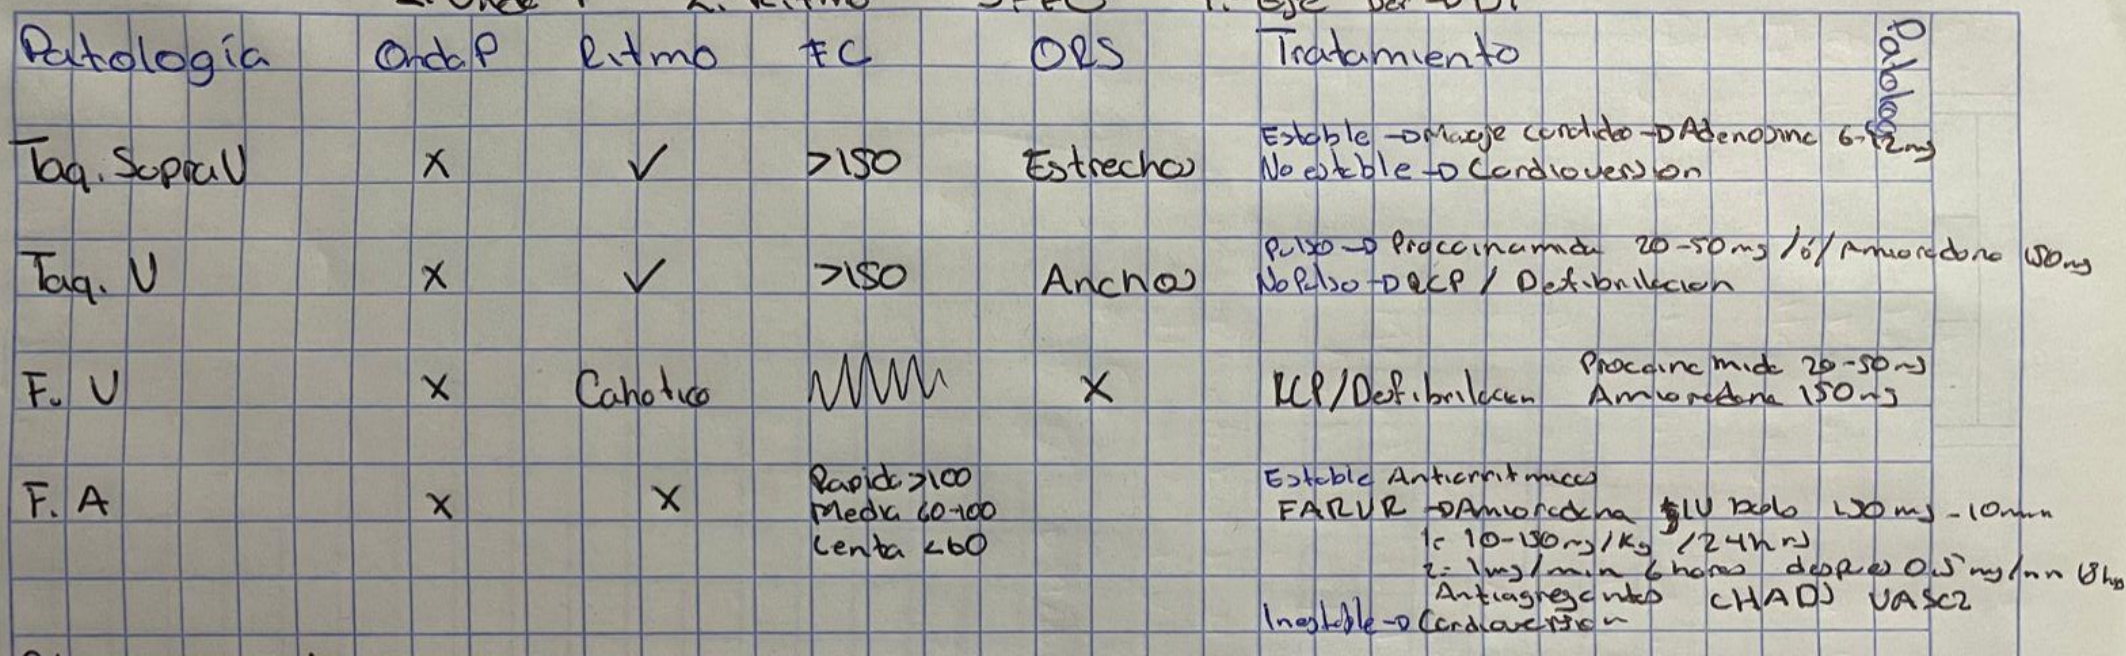 Patología Onda P Ritmo FC QRS Tratamiento
Taq. SupraV X ✓ >150 Estrechos Estable → Masaje carotideo → Adenosina 6-12mg
No estable → Cardioversion
Taq. V X ✓ >150 Anchos Pulso → Procainamida 20-50mg /ó/ Amioradona 150mg
No Pulso → RCP / Defibrilacion
F. V X Cahotico X RCP/Defibrilacion Procainamida 20-50mg
Amioradona 150mg
F. A X X Rapida >100 Estable Antiarritmicos
Media 60-100 FARVR → Amioradona IV bolo 150mg - 10min
Lenta <60 1: 10-150mg/Kg /24hrs
2: 1mg/min 6 horas despues 0.5 mg/min 18hrs
Antiagregantes CHADS VASC2
Inestable → Cardioversion